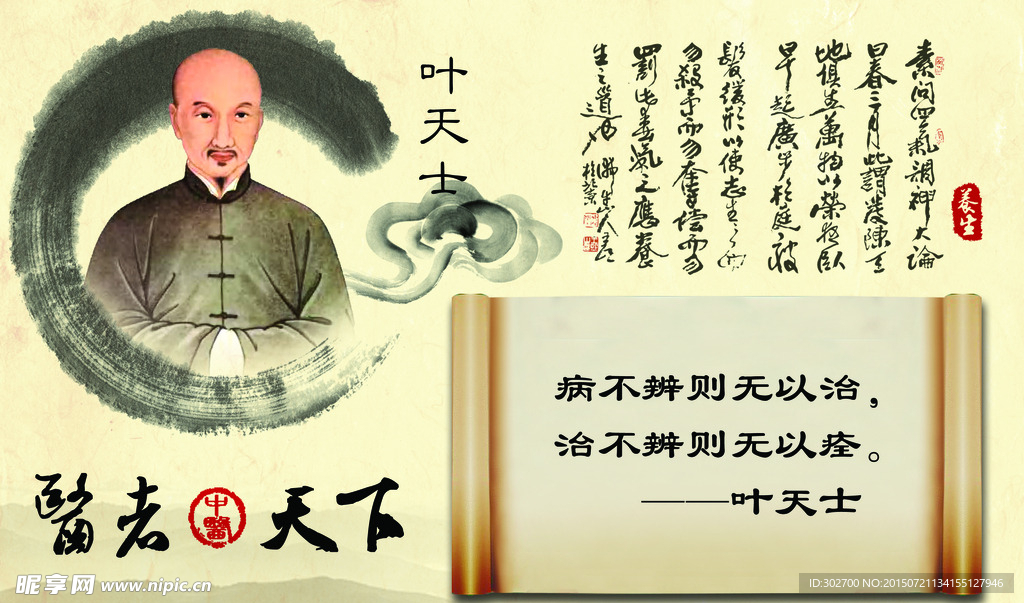 叶天士
素問四氣調神大論
曰春三月此謂發陳天
地俱生萬物以榮夜臥
早起廣步於庭被
髮緩形以使志生生而
勿殺予而勿奪賞而勿
罰此春氣之應養
生之道也
养生
病不辨则无以治，
治不辨则无以痊。
——叶天士
醫者中醫天下
昵享网 www.nipic.cn
ID:302700 NO:20150721134155127946